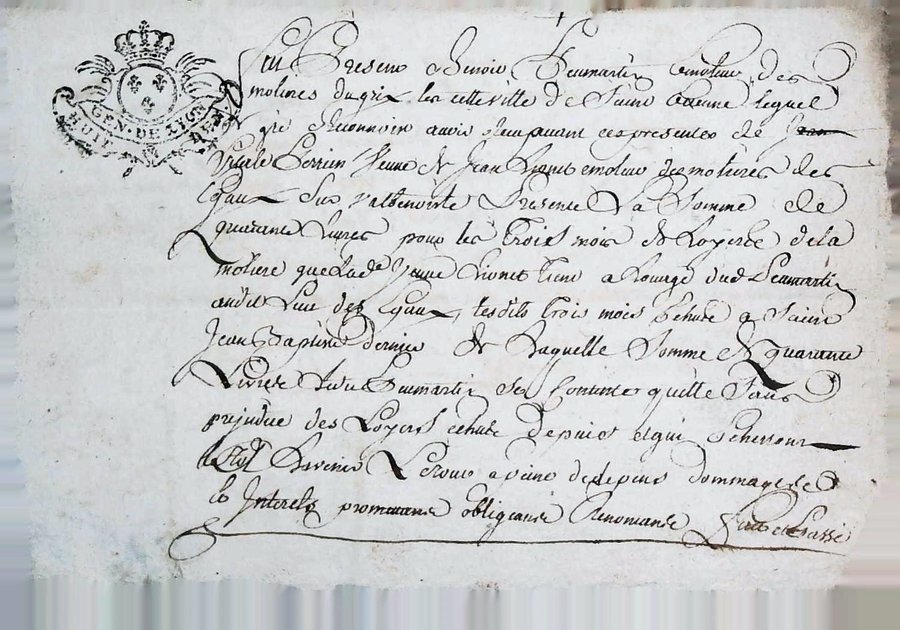 GEN. DE LYON
HUIT
Fut Present Benoit Beumartin Emoleur des
molieres du gix les cette ville de Saint Etienne lequel
de gré Reconnoit avoir Reçu avant ces presentes de Jean
Perrin Veuve de Jean Lionet emoleur des molieres des
Eaux Sur Valbenoite Presente La Somme de
quarante Livres pour les Trois mois de Loyers de la
moliere que Lade Veuve Lionet tient a Louage dud Beumartin
audit Lieu des Eaux, lesdits trois mois Echus a Saint
Jean Baptiste dernier de Laquelle Somme de quarante
Livres Ledit Beumartin Se Contente quitte Sans
prejudice des Loyers echus depuis et qui Echerront
a Lavenir a peine de depens dommages
Interets promettant obligeant Renonceant Fait et Passé